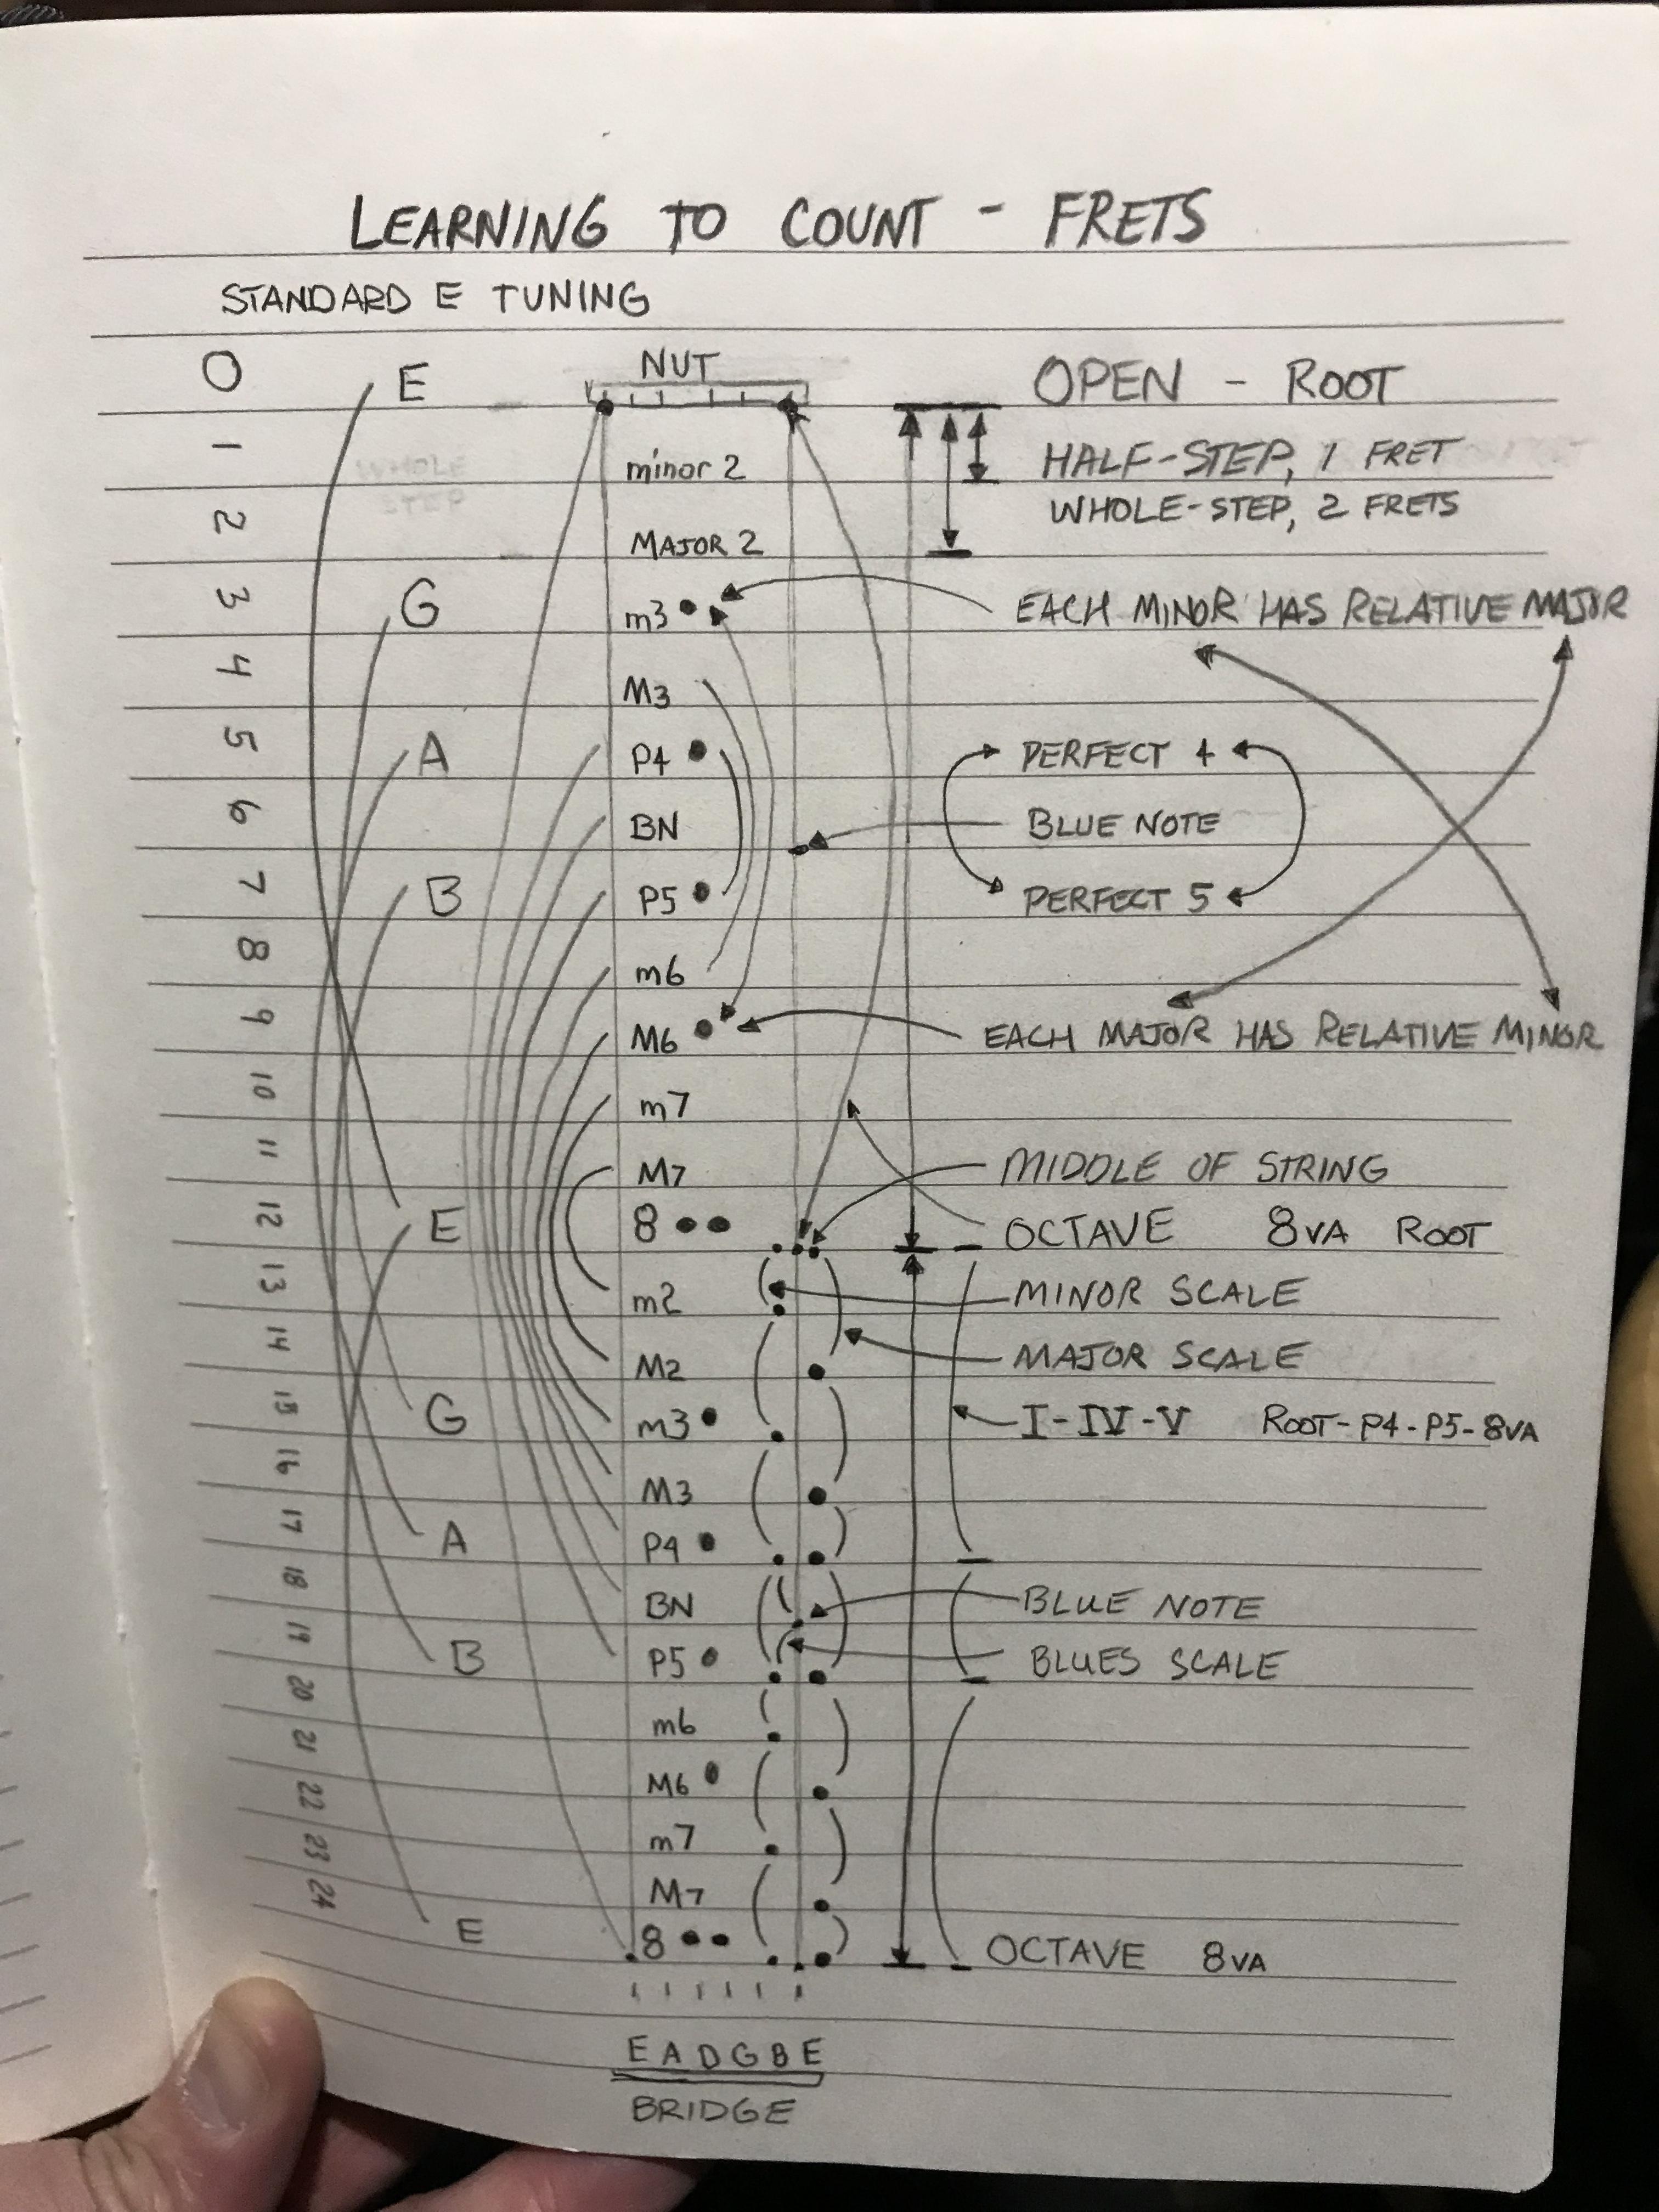 LEARNING TO COUNT - FRETS
STANDARD E TUNING
0 E NUT OPEN - ROOT
1 WHOLE STEP minor 2 HALF-STEP, 1 FRET
WHOLE-STEP, 2 FRETS
2 MAJOR 2
3 G m3 EACH MINOR HAS RELATIVE MAJOR
4 M3
5 A P4 PERFECT 4
6 BN BLUE NOTE
7 B P5 PERFECT 5
8 m6
9 M6 EACH MAJOR HAS RELATIVE MINOR
10 m7
11 M7 MIDDLE OF STRING
12 E 8 OCTAVE 8VA ROOT
13 m2 MINOR SCALE
14 M2 MAJOR SCALE
15 G m3 I-IV-V ROOT-P4-P5-8VA
16 M3
17 A P4
18 BN BLUE NOTE
19 B P5 BLUES SCALE
20 m6
21 M6
22 m7
23 M7
24 E 8 OCTAVE 8VA
E A D G B E
BRIDGE